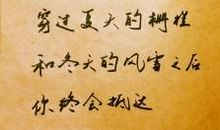 穿过夏天的栅栏
和冬天的风雪之后
你终会抵达